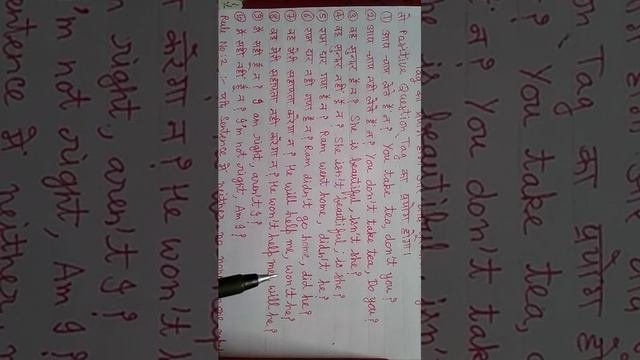 तो Positive Question Tag का प्रयोग होगा।
① आप चाय लेते हैं न? You take tea, don't you?
② आप चाय नहीं लेते हैं न? You don't take tea, Do you?
③ वह सुन्दर है न? She is beautiful isn't she?
④ वह सुन्दर नहीं है न? She isn't beautiful, is she?
⑤ राम घर गया है न? Ram went home, didn't he?
⑥ राम घर नहीं गया है न? Ram didn't go home, did he?
⑦ वह मेरी सहायता करेगा न? He will help me, won't he?
⑧ वह मेरी सहायता नहीं करेगा न? He won't help me, will he?
⑨ मैं सही हूँ न? I am right, aren't I?
⑩ मैं सही नहीं हूँ न? I'm not right. Am I?
Rule No-2 :- यदि Sentence में neither, no, none